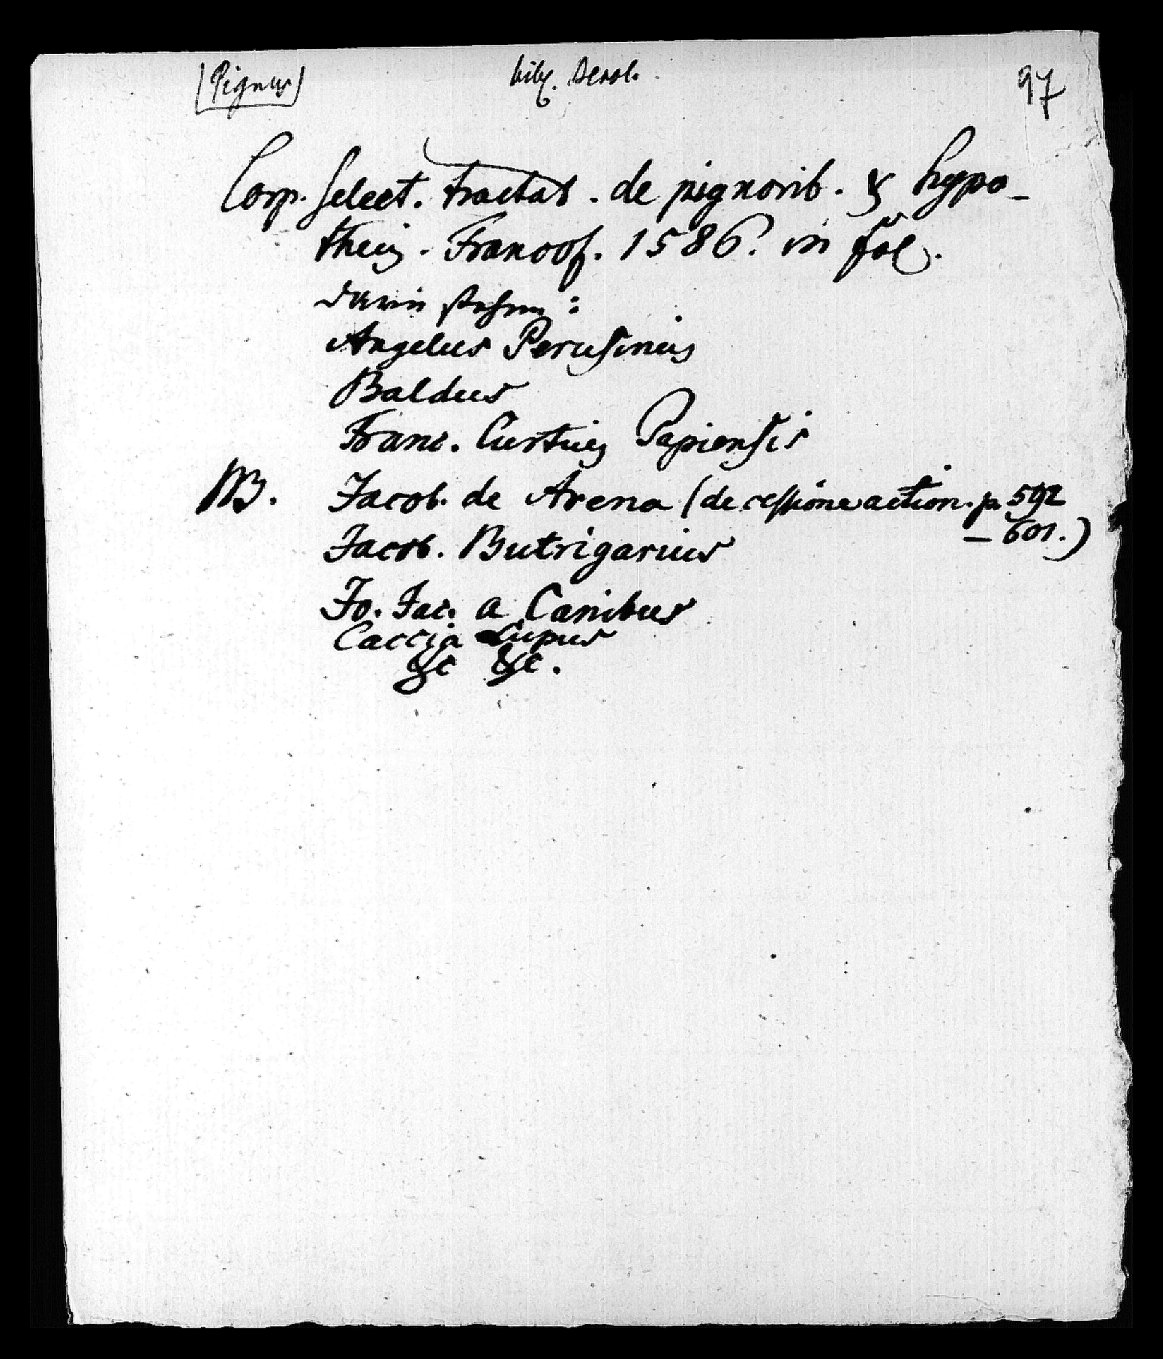 [Pignus] bibl. Berol. 97
Corp. select. tractat. de pignorib. & hypo-
thecis. Francof. 1586. in fol.
darin stehen:
Angelus Perusinus
Baldus
Franc. Curtius Papiensis
NB. Jacob. de Arena (de cessione action. p. 592
– 601.)
Jacob. Butrigarius
Jo. Jac. a Canibus
Caccia Lupus
&c &c.